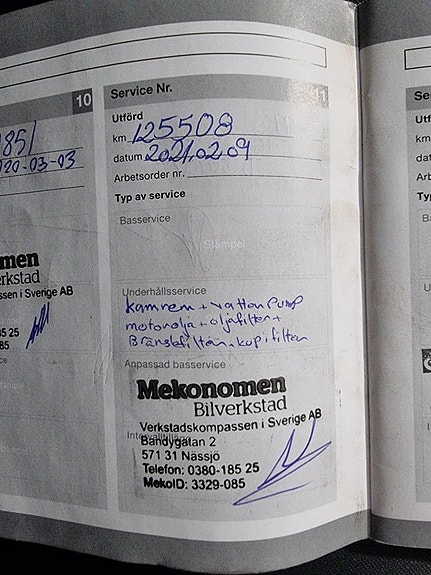 10
851
020-03-03
men
rkstad
ssen i Sverige AB
85 25
85
Service Nr. 11
Utförd
km 125508
datum 2021.02.09
Arbetsorder nr.
Typ av service
Basservice
Stämpel
Underhållsservice
kamrem + vattenpump
motorolja + oljefilter +
Bränslefilter. kupefilter
Anpassad basservice
Mekonomen
Bilverkstad
Verkstadskompassen i Sverige AB
Bandygatan 2
571 31 Nässjö
Telefon: 0380-185 25
MekoID: 3329-085
Se
Utf
km
dat
Arb
Typ
Ba